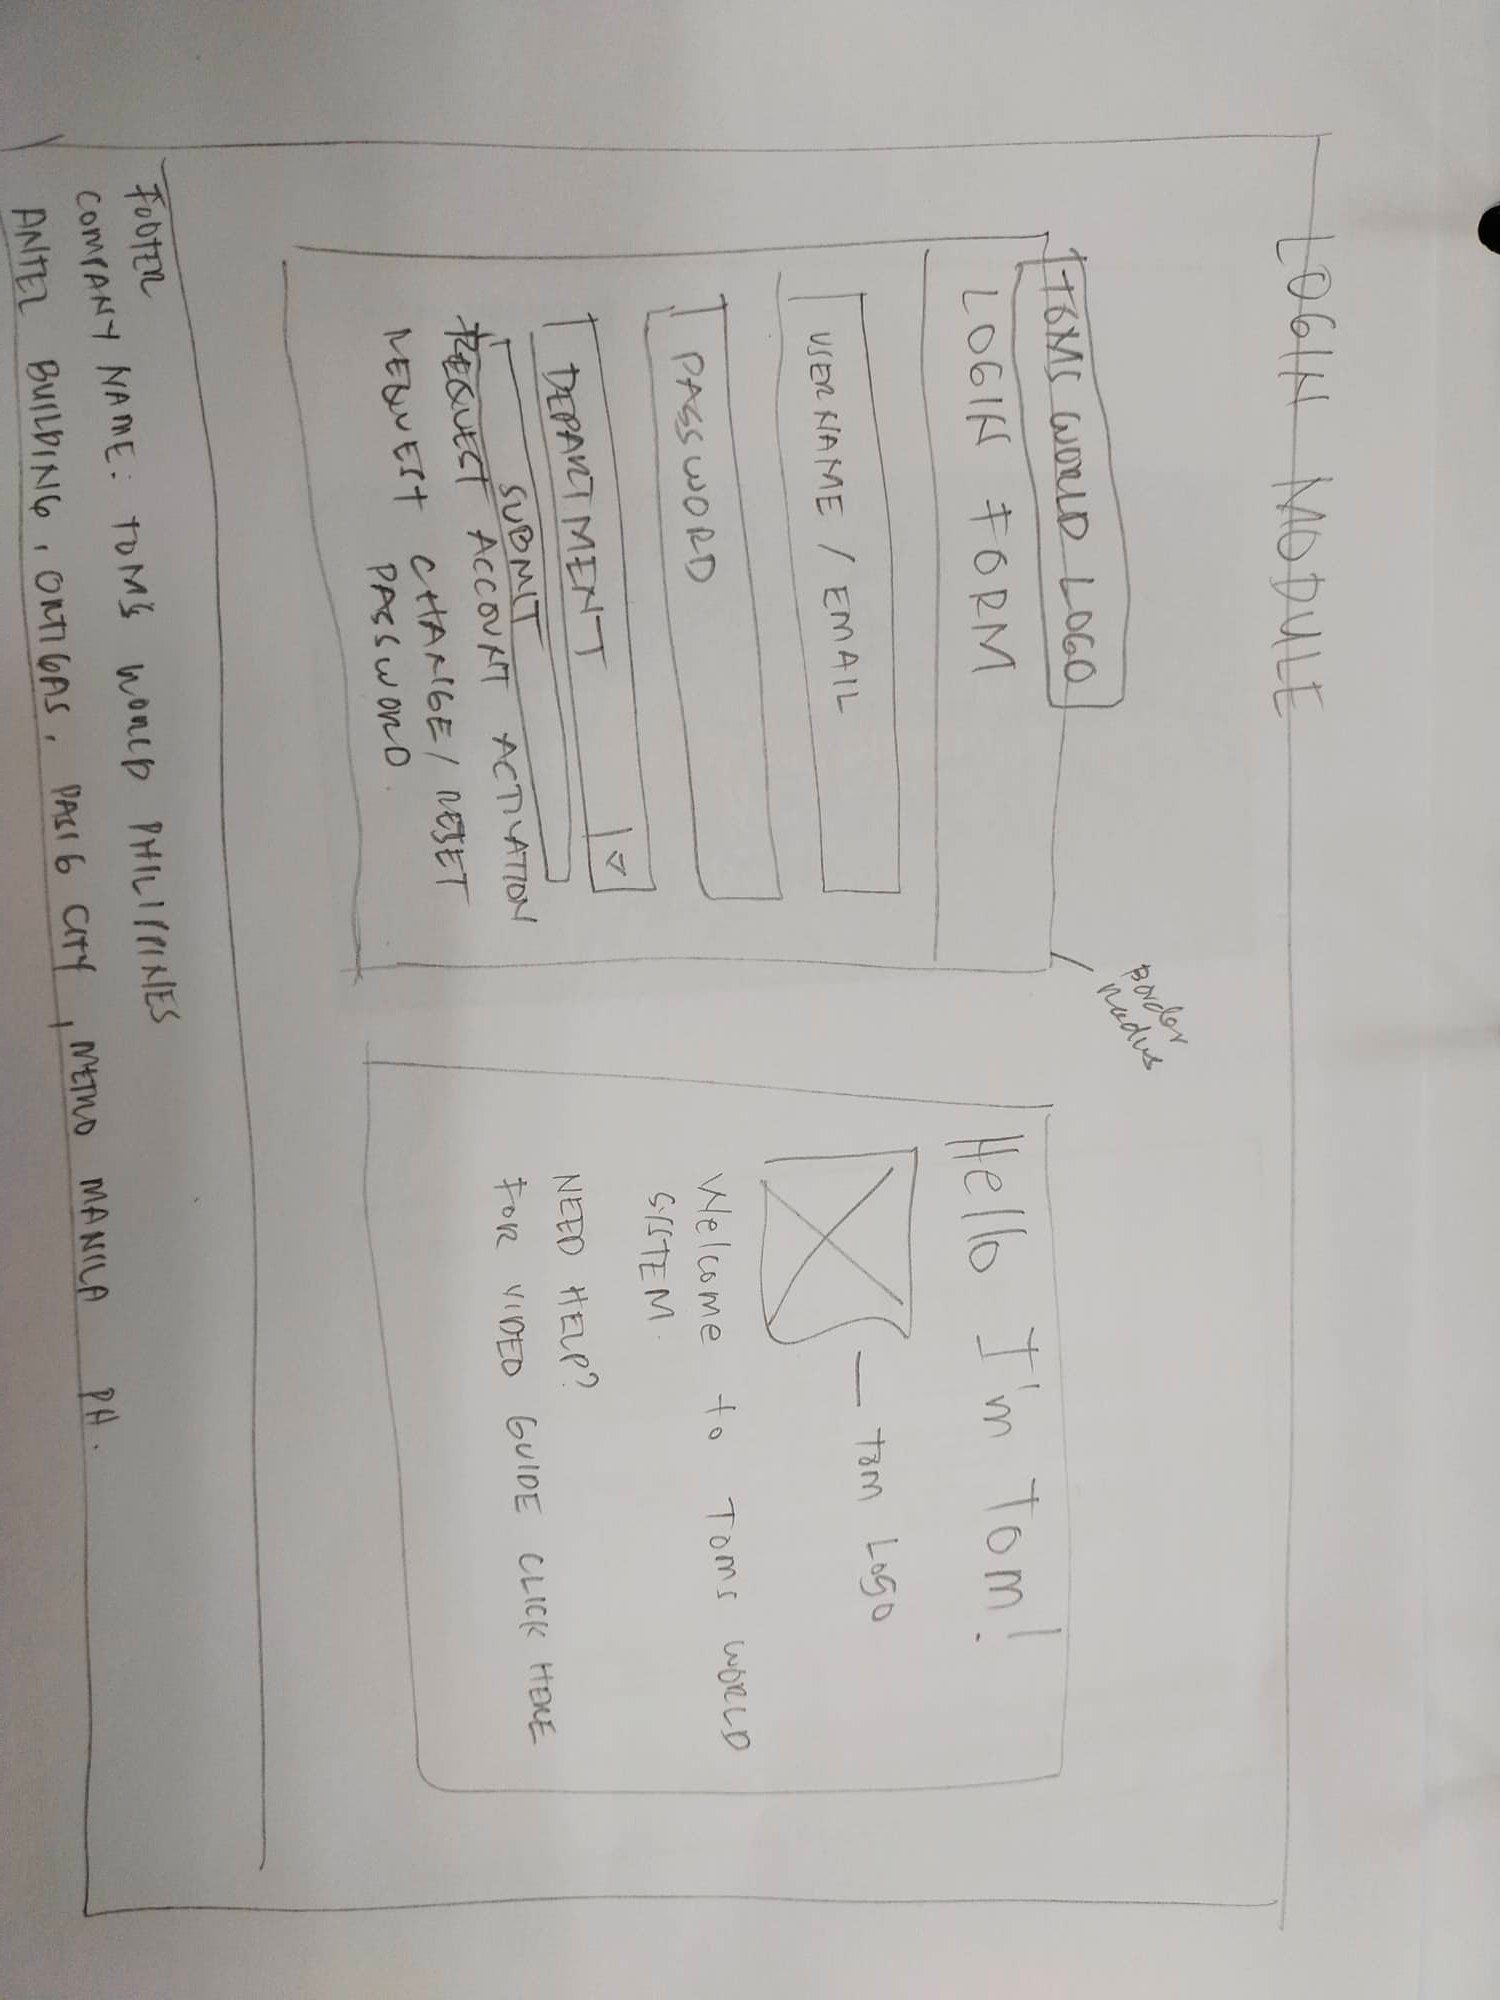 LOGIN MODULE
Border
Radius
TOMS WORLD LOGO
LOGIN FORM
USERNAME / EMAIL
PASSWORD
DEPARTMENT
SUBMIT
REQUEST ACCOUNT ACTIVATION
REQUEST CHANGE/RESET
PASSWORD.
Hello I'm Tom!
Tom Logo
Welcome to Toms WORLD
SYSTEM.
NEED HELP?
FOR VIDEO GUIDE CLICK HERE
FOOTER
COMPANY NAME: TOM'S WORLD PHILIPPINES
ANTEL BUILDING, ORTIGAS, PASIG CITY, METRO MANILA PH.